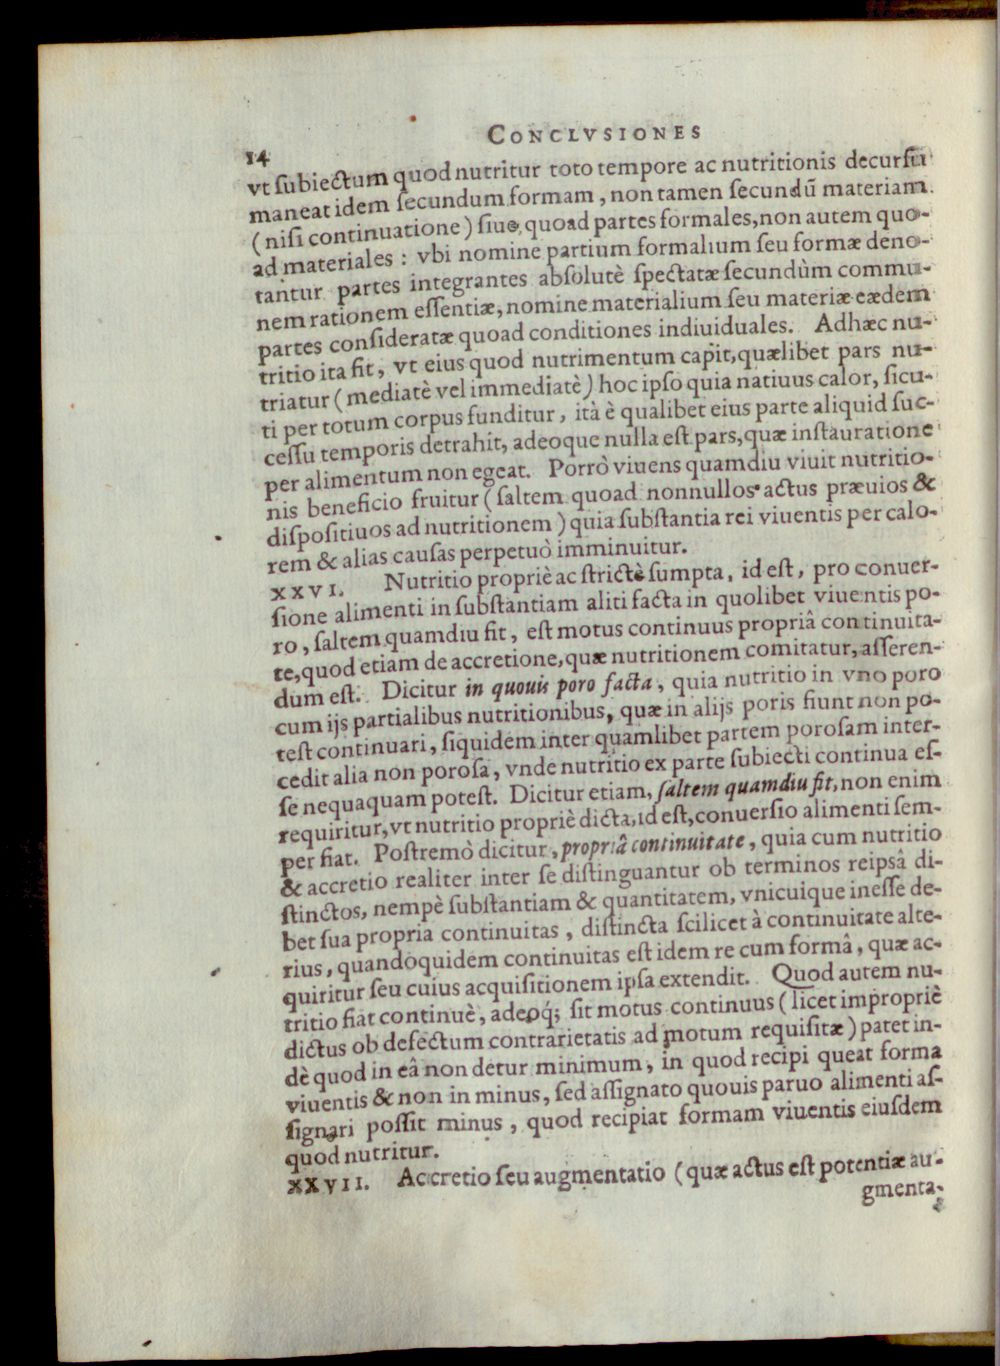 CONCLVSIONES
14
vt ſubiectum quod nutritur toto tempore ac nutritionis decurſu
maneat idem ſecundum formam, non tamen ſecundũ materiam
(niſi continuatione) ſiue, quoad partes formales, non autem quo-
ad materiales: vbi nomine partium formalium ſeu formæ deno-
tantur partes integrantes abſolutè ſpectatæ ſecundùm commu-
nem rationem eſſentiæ, nomine materialium ſeu materiæ eædem
partes conſideratæ quoad conditiones indiuiduales. Adhæc nu-
tritio ita fit, vt eius quod nutrimentum capit, quælibet pars nu-
triatur (mediatè vel immediatè) hoc ipſo quia natiuus calor, ſicu-
ti per totum corpus funditur, ità è qualibet eius parte aliquid ſuc-
ceſſu temporis detrahit, adeoque nulla eſt pars, quæ inſtauratione
per alimentum non egeat. Porrò viuens quamdiu viuit nutritio-
nis beneficio fruitur (ſaltem quoad nonnullos actus præuios &
diſpoſitiuos ad nutritionem) quia ſubſtantia rei viuentis per calo-
rem & alias cauſas perpetuò imminuitur.
XXVI. Nutritio propriè ac ſtrictè ſumpta, id eſt, pro conuer-
ſione alimenti in ſubſtantiam aliti facta in quolibet viuentis po-
ro, ſaltem quamdiu fit, eſt motus continuus propriâ continuita-
te, quod etiam de accretione, quæ nutritionem comitatur, aſſeren-
dum eſt. Dicitur in quouis poro facta, quia nutritio in vno poro
cum ijs partialibus nutritionibus, quæ in alijs poris fiunt non po-
teſt continuari, ſiquidem inter quamlibet partem poroſam inter-
cedit alia non poroſa, vnde nutritio ex parte ſubiecti continua eſ-
ſe nequaquam poteſt. Dicitur etiam, ſaltem quamdiu fit, non enim
requiritur, vt nutritio propriè dicta, id eſt, conuerſio alimenti ſem-
per fiat. Poſtremò dicitur, propriâ continuitate, quia cum nutritio
& accretio realiter inter ſe diſtinguantur ob terminos reipsâ di-
ſtinctos, nempè ſubſtantiam & quantitatem, vnicuique ineſſe de-
bet ſua propria continuitas, diſtincta ſcilicet à continuitate alte-
rius, quandoquidem continuitas eſt idem re cum formâ, quæ ac-
quiritur ſeu cuius acquiſitionem ipſa extendit. Quod autem nu-
tritio fiat continuè, adeoq́; ſit motus continuus (licet impropriè
dictus ob defectum contrarietatis ad motum requiſitæ) patet in-
dè quod in eâ non detur minimum, in quod recipi queat forma
viuentis & non in minus, ſed aſſignato quouis paruo alimenti aſ-
ſignari poſſit minus, quod recipiat formam viuentis eiuſdem
quod nutritur.
XXVII. Accretio ſeu augmentatio (quæ actus eſt potentiæ au-
gmenta-